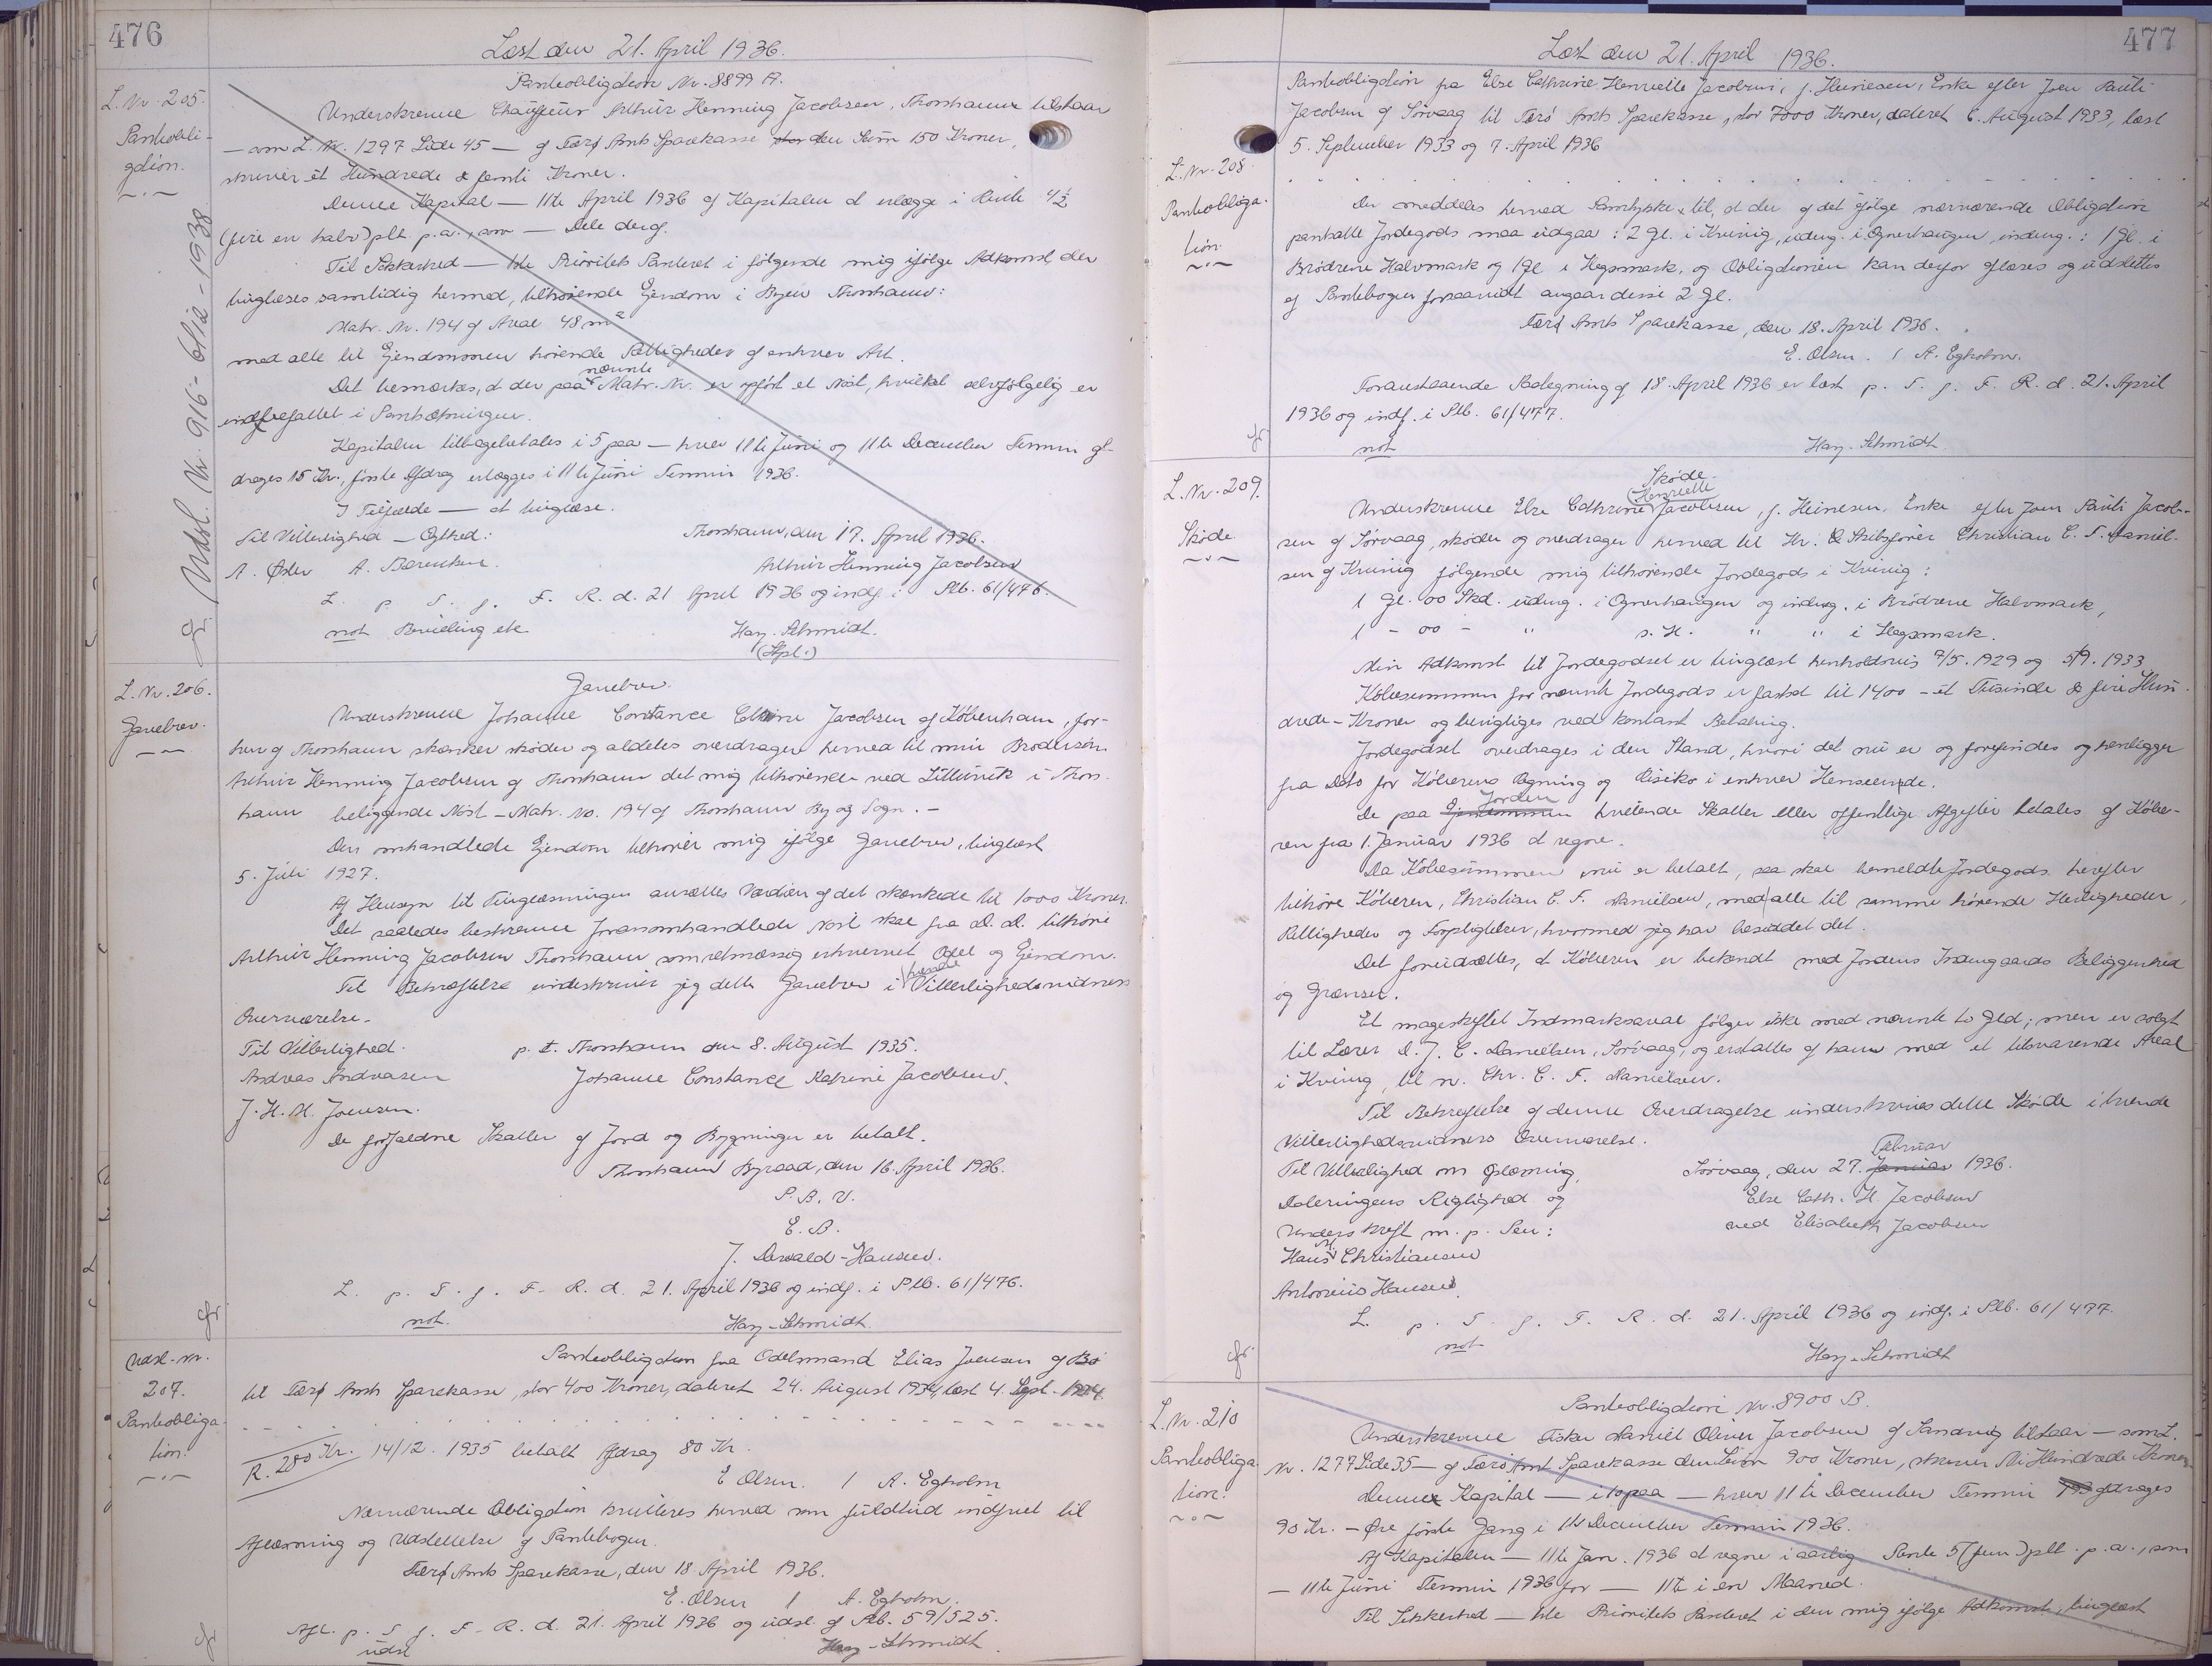 476
Læst den 21. April 1936.
L. Nr. 205.
Pantobli-
gation.
Udsl. Nr. 916 - 6/12 - 1938
Panteobligation Nr. 8899 A.
Underskrevne Chauffeur Arthur Henning Jacobsen, Thorshavn tilstaar
— som L. Nr. 1297 Side 45 — af Færø Amts Sparekasse den Sum 150 Kroner,
skriver et Hundrede & femti Kroner.
Denne Kapital — 11te April 1936 af Kapitalen at erlægge i Rente 4½
(fire en halv) pCt. p.a., som — Dele deraf.
Til Sikkerhed — 1ste Prioritets Panteret i følgende mig ifølge Adkomst, der
tinglæses samtidig hermed, tilhørende Ejendom i Byen Thorshavn:
Matr. Nr. 194 af Areal 48 m²
med alle til Ejendommen hørende Rettigheder af enhver Art.
Det bemærkes, at der paa nævnte Matr. Nr. er opført et Nøst, hvilket selvfølgelig er
indbefattet i Pantsætningen.
Kapitalen tilbagebetales i 5 paa — hver 11te Juni og 11te December Termin af-
drages 15 Kr., første Afdrag erlægges i 11te Juni Termin 1936.
I Tilfælde — at tinglæse.
Til Vitterlighed — Ægthed:
Thorshavn, den 17. April 1936.
A. Øster A. Bærentsen.
Arthur Henning Jacobsen
L. p. T. f. F. R. d. 21 April 1936 og indf. i Ptb. 61/476.
not Bevilling etc
Hay-Schmidt.
(Stpl.)
L. Nr. 206.
Gavebrev.
Gavebrev.
Underskrevne Johanne Constance Cathrine Jacobsen af København, før-
hen af Thorshavn skænker skøder og aldeles overdrager herved til min Brodersøn
Arthur Henning Jacobsen af Thorshavn det mig tilhørende ved Littuvik i Thors-
havn beliggende Nøst — Matr. No. 194 af Thorshavn By og Sogn. —
Den omhandlede Ejendom tilhører mig ifølge Gavebrev, tinglæst
5. Juli 1927.
Af Hensyn til Tinglæsningen ansættes Værdien af det skænkede til 1000 Kroner.
Det saaledes beskrevne foranomhandlede Nøst skal fra D. D. tilhøre
Arthur Henning Jacobsen Thorshavn som retmæssig erhvervet Odel og Ejendom.
Til Bekræftelse underskriver jeg dette Gavebrev i tvende Vitterlighedsvidners
Overværelse.
Til Vitterlighed.
p. t. Thorshavn den 8. August 1935.
Andreas Andreasen
Johanne Constance Katrine Jacobsen.
J. H. M. Joensen.
De forfaldne Skatter af Jord og Bygninger er betalt.
Thorshavn Byraad, den 16. April 1936.
P. B. V.
E. B.
J. Dewald-Hansen.
L. p. T. f. F. R. d. 21. April 1936 og indf. i Ptb. 61/476.
not.
Hay-Schmidt.
Udsl. Nr.
207.
Panteobliga-
tion.
Panteobligation fra Odelsmand Elias Joensen af Bø
til Færø Amts Sparekasse, stor 400 Kroner, dateret 24. August 1934, læst 4. Sept. 1934.
R. 280 Kr. 14/12. 1935 betalt Afdrag 80 Kr.
E Olsen. / A. Egholm
Nærværende Obligation kvitteres herved som fuldtud indfriet til
Aflæsning og Udslettelse af Pantebogen.
Færø Amts Sparekasse, den 18 April 1936.
E. Olsen / A. Egholm.
Afl. p. T. f. F. R. d. 21. April 1936 og udsl. af Ptb. 59/525.
udsl
Hay-Schmidt.
477
Læst den 21. April 1936.
L. Nr. 208.
Panteobliga-
tion.
Panteobligation fra Else Cathrine Henriette Jacobsen, f. Heinesen, Enke efter Joen Pauli
Jacobsen af Sørvaag til Færø Amts Sparekasse, stor 7000 Kroner, dateret 6. August 1933, læst
5. September 1933 og 7. April 1936
Der meddeles herved Samtykke til, at der af det ifølge nærværende Obligation
pantsatte Jordegods maa udgaa: 2 Gl. i Kvivig, udmg. i Ognerhaugen, indmg.: 1 Gl. i
Brødrene Halvmark og 1 Gl. i Hegsmark, og Obligationen kan derfor aflæses og udslettes
af Pantebogen forsaavidt angaar disse 2 Gl.
Færø Amts Sparekasse, den 18. April 1936.
E. Olsen. / A. Egholm.
Foranstaaende Paategning af 18. April 1936 er læst p. T. f. F. R. d. 21. April
1936 og indf. i Ptb. 61/477.
not
Hay-Schmidt
L. Nr. 209.
Skøde
Skøde.
Underskrevne Else Cathrine Henriette Jacobsen, f. Heinesen, Enke efter Joen Pauli Jacob-
sen af Sørvaag, skøder og overdrager herved til Hr. Skibsfører Christian C. F. Daniel-
sen af Kvivig følgende mig tilhørende Jordegods i Kvivig:
1 Gl. 00 Skd. udmg. i Ognerhaugen og indmg. i Brødrene Halvmark,
1 - 00 - " s. H. " " i Hegsmark.
Min Adkomst til Jordegodset er tinglæst henholdsvis 7/5. 1929 og 5/9. 1933
Købesummen for nævnte Jordegods er fastsat til 1400 - et Tusinde & fire Hun-
drede - Kroner og berigtiges ved kontant Betaling.
Jordegodset overdrages i den Stand, hvori det nu er og forefindes og henligger
fra Dato for Køberens Regning og Risiko i enhver Henseende.
De paa Jorden hvilende Skatter eller offentlige Afgifter betales af Købe-
ren fra 1. Januar 1936 at regne.
Da Købesummen nu er betalt, saa skal bemeldte Jordegods herefter
tilhøre Køberen, Christian C. F. Danielsen, med alle til samme hørende Herligheder,
Rettigheder og Forpligtelser, hvormed jeg har besiddet det.
Det forudsættes, at Køberen er bekendt med Jordens Indengaards Beliggenhed
og Grænser.
Et mageskiftet Indmarksareal følger ikke med nævnte to Gld; men er solgt
til Lærer D. J. C. Danielsen, Sørvaag, og erstattes af ham med et tilsvarende Areal
i Kvivig, til n. Chr. C. F. Danielsen.
Til Bekræftelse af denne Overdragelse underskrives dette Skøde i tvende
Vitterlighedsvidners Overværelse.
Til Vitterlighed om Oplæsning,
Sørvaag, den 27. Februar 1936.
Dateringens Rigtighed og
Else Cath. H. Jacobsen
Underskrift m. p. Pen:
ved Elisabeth Jacobsen
Hans M. Christiansen
Antonius Hansen.
L. p. T. f. F. R. d. 21. April 1936 og indf. i Ptb. 61/477.
not
Hay-Schmidt
L. Nr. 210
Panteobliga-
tion.
Panteobligation Nr. 8900 B.
Underskrevne Fisker Daniel Oliver Jacobsen af Sandvig tilstaar — som L.
Nr. 1277 Side 35 — af Færø Amt Sparekasse den Sum 900 Kroner, skriver Ni Hundrede Kroner
Denne Kapital — i 10 paa — hver 11te December Termin afdrages
90 Kr. — Øre første Gang i 11te December Termin 1936.
Af Kapitalen — 11te Jan. 1936 at regne i aarlig Rente 5 (fem) pCt. p.a., som
— 11te Juni Termin 1936 for — 11te i en Maaned.
Til Sikkerhed — 1ste Prioritets Panteret i den mig ifølge Adkomst, tinglæst